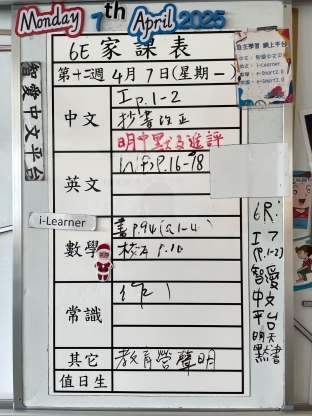 Monday 7th April 2025
6E 家課表
第十二週 4月7日(星期一)
智愛中文平台
自主學習 網上平台
中文
工 p.1-2
抄書改正
明中默及進評
英文
P.16-18
i-Learner
數學
書P.94(Q.1-4)
校工 P.16
常識
作 1
其它
教育營聲明
值日生
6R:
工 7
(P.1-2)
智愛
中文
平台
明天
默書